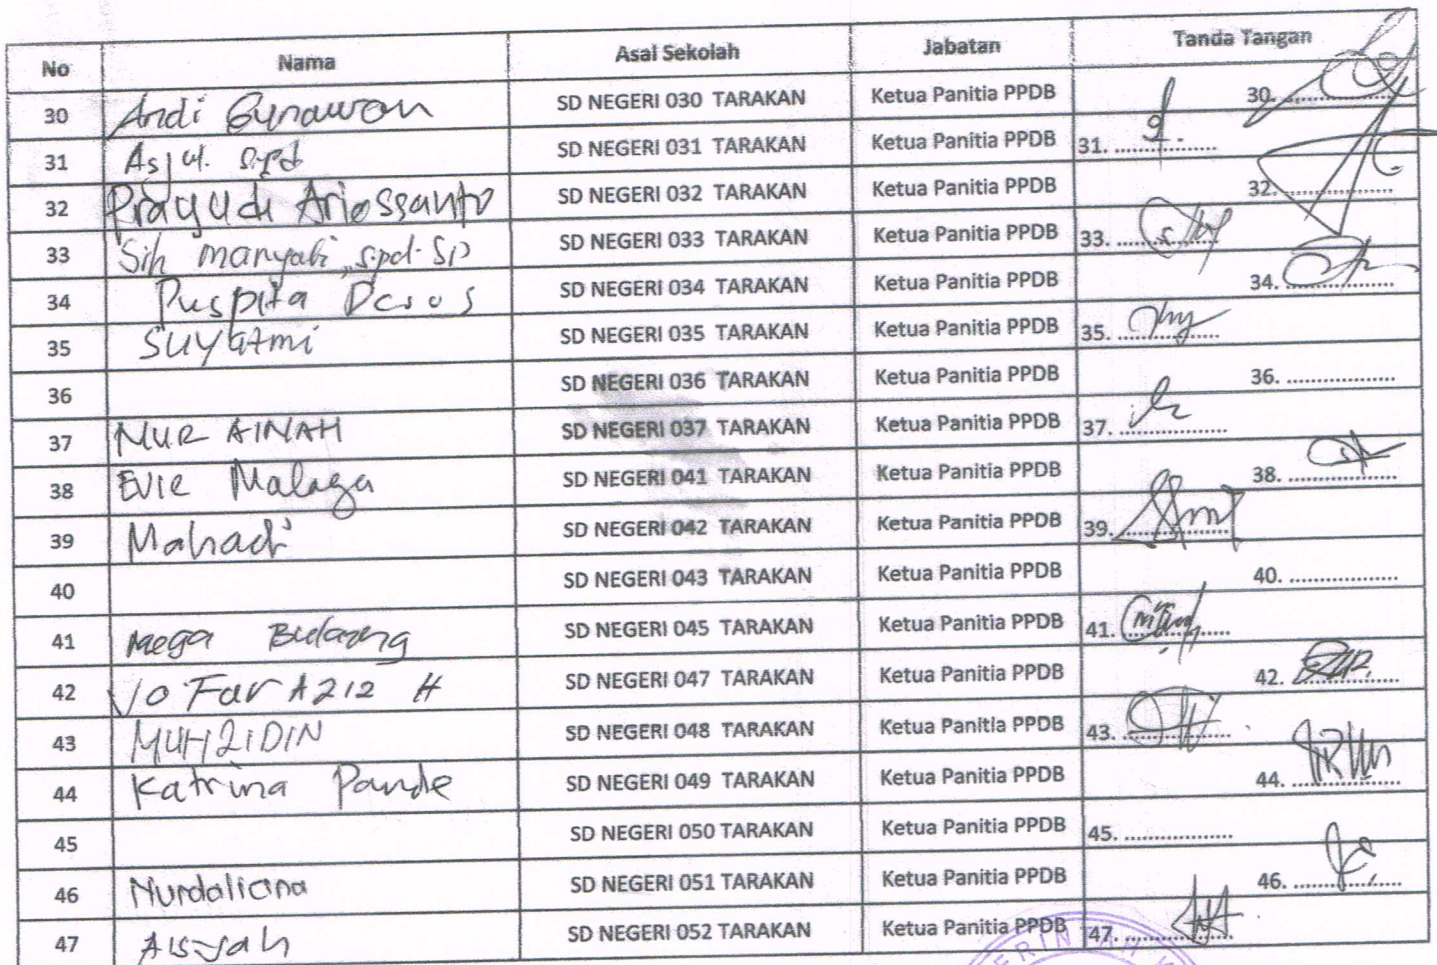 No Nama Asal Sekolah Jabatan Tanda Tangan
30 Andi Gunawan SD NEGERI 030 TARAKAN Ketua Panitia PPDB 30. ............
31 S.Pd SD NEGERI 031 TARAKAN Ketua Panitia PPDB 31. ............
32 Prayudi Ariessanto SD NEGERI 032 TARAKAN Ketua Panitia PPDB 32. ............
33 Sih manyabi, S.pd. SD SD NEGERI 033 TARAKAN Ketua Panitia PPDB 33. ............
34 Puspita SD NEGERI 034 TARAKAN Ketua Panitia PPDB 34. ............
35 Suyatmi SD NEGERI 035 TARAKAN Ketua Panitia PPDB 35. ............
36 SD NEGERI 036 TARAKAN Ketua Panitia PPDB 36. ............
37 NUR AINAH SD NEGERI 037 TARAKAN Ketua Panitia PPDB 37. ............
38 Evie Malaga SD NEGERI 041 TARAKAN Ketua Panitia PPDB 38. ............
39 Mahadi SD NEGERI 042 TARAKAN Ketua Panitia PPDB 39. ............
40 SD NEGERI 043 TARAKAN Ketua Panitia PPDB 40. ............
41 Mega SD NEGERI 045 TARAKAN Ketua Panitia PPDB 41. ............
42 H SD NEGERI 047 TARAKAN Ketua Panitia PPDB 42. ............
43 MUHZIDIN SD NEGERI 048 TARAKAN Ketua Panitia PPDB 43. ............
44 Katrina Pande SD NEGERI 049 TARAKAN Ketua Panitia PPDB 44. ............
45 SD NEGERI 050 TARAKAN Ketua Panitia PPDB 45. ............
46 Nurdaliana SD NEGERI 051 TARAKAN Ketua Panitia PPDB 46. ............
47 Aisyah SD NEGERI 052 TARAKAN Ketua Panitia PPDB 47. ............